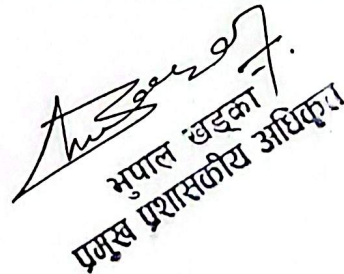 भुपाल खड्का
प्रमुख प्रशासकीय अधिकृत